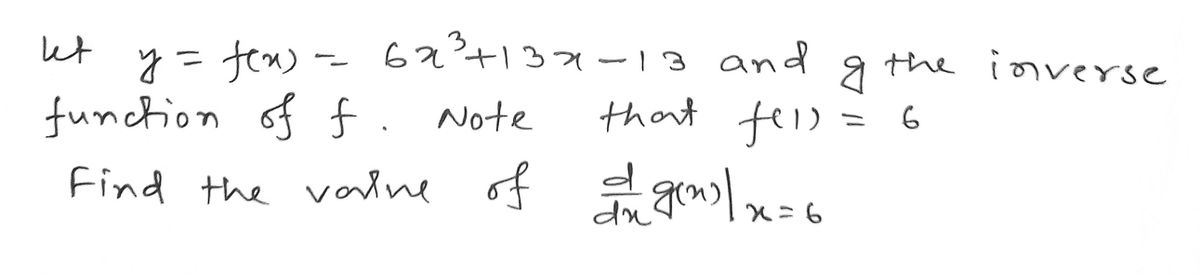 let y = f(x) = 6x³+13x-13 and g the inverse
function of f. Note that f(1) = 6
Find the value of d/dx g(x)|x=6